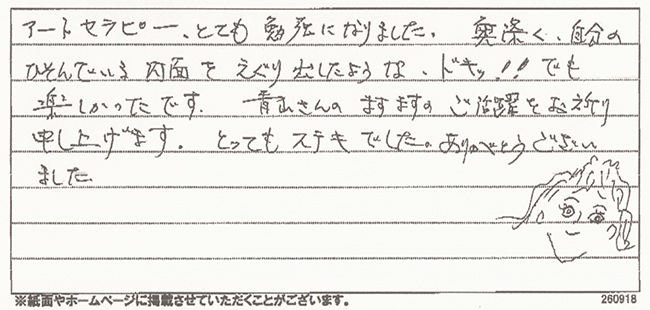 アートセラピー、とても勉強になりました。奥深く、自分の
ひそんでいる内面をえぐり出したような、ドキッ!!でも
楽しかったです。青山さんのますますのご活躍をお祈り
申し上げます。とってもステキでした。ありがとうござい
ました
※紙面やホームページに掲載させていただくことがございます。
260918